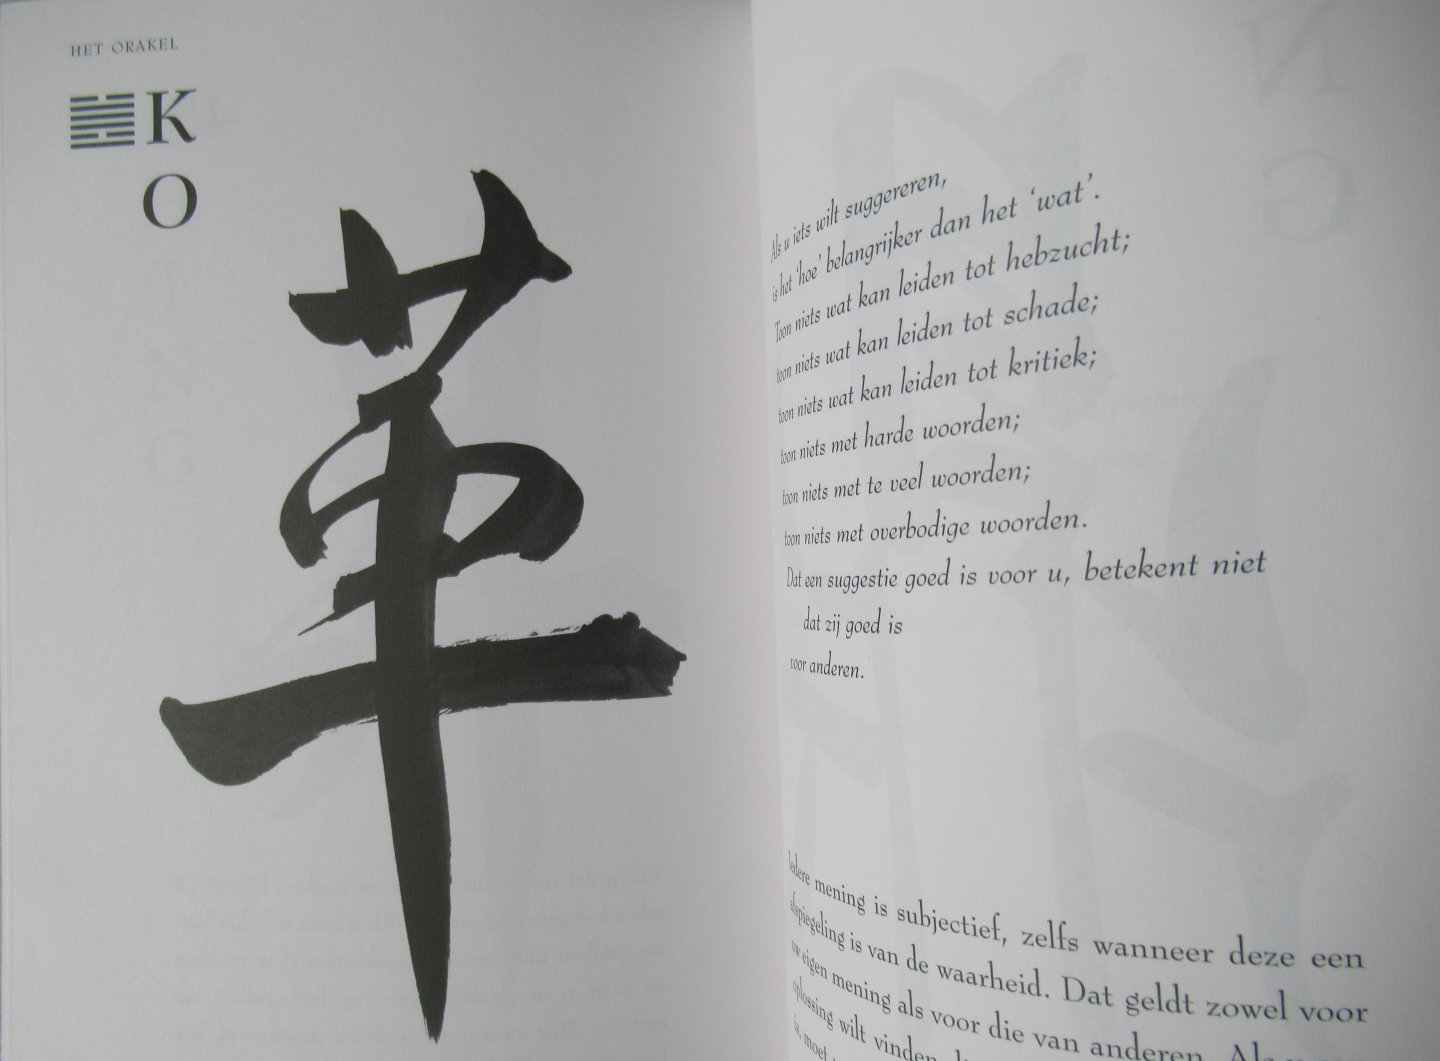 HET ORAKEL
K
O
革
Als u iets wilt suggereren,
is het ‘hoe’ belangrijker dan het ‘wat’.
Toon niets wat kan leiden tot hebzucht;
toon niets wat kan leiden tot schade;
toon niets wat kan leiden tot kritiek;
toon niets met harde woorden;
toon niets met te veel woorden;
toon niets met overbodige woorden.
Dat een suggestie goed is voor u, betekent niet
dat zij goed is
voor anderen.
Iedere mening is subjectief, zelfs wanneer deze een
afspiegeling is van de waarheid. Dat geldt zowel voor
uw eigen mening als voor die van anderen. Als
oplossing wilt vinden,
is, moet